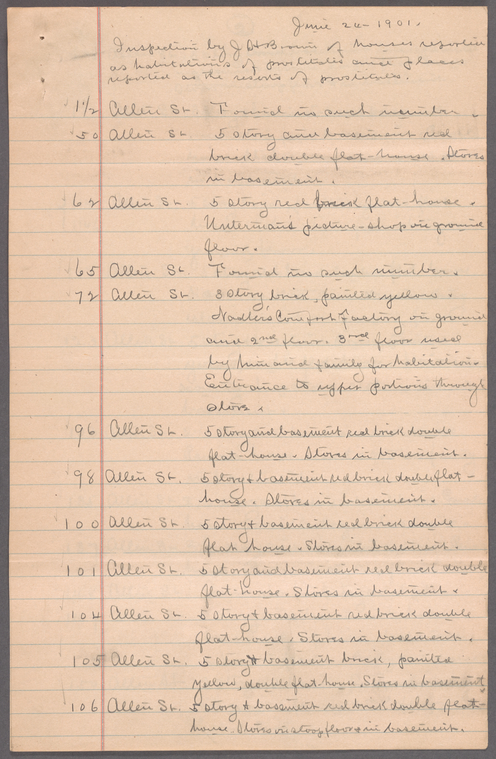 June 24 - 1901.
Inspection by J A H Brown of houses reported
as habitations of prostitutes and places
reported as the resorts of prostitutes.
1 1/2 Allen St. Found no such number.
50 Allen St. 5 story and basement red
brick double flat-house. Stores
in basement.
62 Allen St. 5 story red brick flat-house.
Unterman's picture-shop on ground
floor.
65 Allen St. Found no such number.
72 Allen St. 3 story brick, painted yellow.
Nadler's Comfort Factory on ground
and 2nd floor. 3rd floor used
by him and family for habitation.
Entrance to upper portions through
store.
96 Allen St. 5 story and basement red brick double
flat-house. Stores in basement.
98 Allen St. 5 story & basement red brick double flat-
house. Stores in basement.
100 Allen St. 5 story & basement red brick double
flat house. Stores in basement.
101 Allen St. 5 story and basement red brick double
flat-house. Stores in basement.
104 Allen St. 5 story & basement red brick double
flat-house. Stores in basement.
105 Allen St. 5 story & basement brick, painted
yellow, double flat-house. Stores in basement
106 Allen St. 5 story & basement red brick double flat-
house. Stores on stoop floor & in basement.